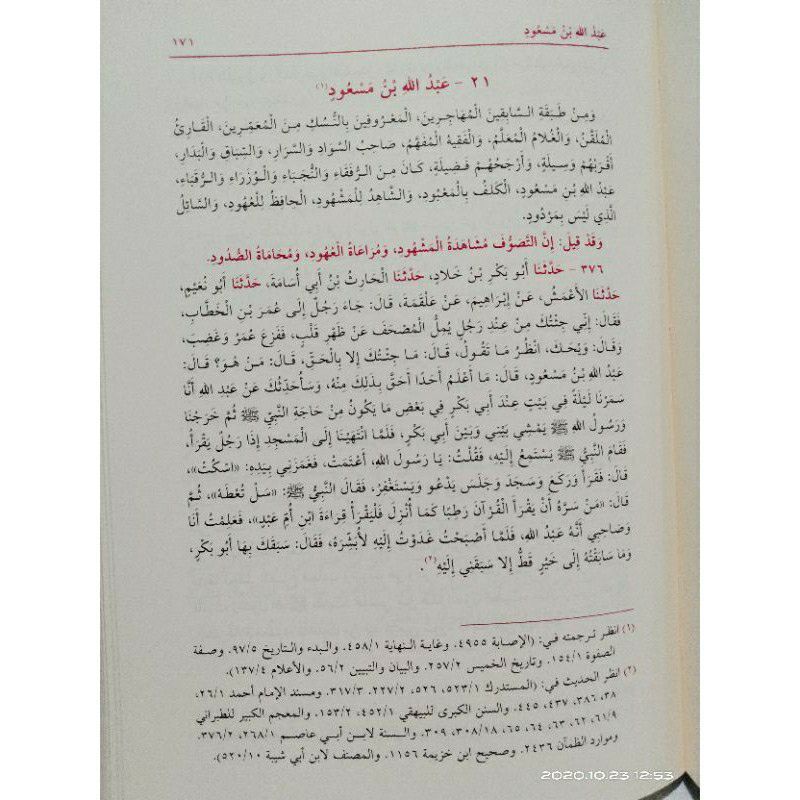 عَبْدُ اللهِ بْنُ مَسْعُودٍ
١٧١
٢١ - عَبْدُ اللهِ بْنُ مَسْعُودٍ(١)
وَمِنْ طَبَقَةِ السَّابِقِينَ الْمُهَاجِرِينَ، الْمَعْرُوفِينَ بِالنُّسُكِ مِنَ الْمُعَمِّرِينَ، الْقَارِئُ
الْمُلَقَّنُ، وَالْغُلَامُ الْمُعَلَّمُ، وَالْفَقِيهُ الْمُفَهَّمُ، صَاحِبُ السِّوَادِ وَالسِّرَارِ، وَالسِّبَاقِ وَالْبَدَارِ،
أَقْرَبُهُمْ وَسِيلَةً، وَأَرْجَحُهُمْ فَضِيلَةً، كَانَ مِنَ الرُّفَقَاءِ وَالنُّجَبَاءِ وَالْوُزَرَاءِ وَالرُّقَبَاءِ،
عَبْدُ اللهِ بْنِ مَسْعُودٍ، الْكَلِفُ بِالْمَعْبُودِ، وَالشَّاهِدُ لِلْمَشْهُودِ، الْحَافِظُ لِلْعُهُودِ، وَالسَّائِلُ
الَّذِي لَيْسَ بِمَرْدُودٍ.
وَقَدْ قِيلَ: إِنَّ التَّصَوُّفَ مُشَاهَدَةُ الْمَشْهُودِ، وَمُرَاعَاةُ الْعُهُودِ، وَمُحَامَاةُ الصُّدُودِ.
٣٧٦ - حَدَّثَنَا أَبُو بَكْرِ بْنُ خَلَادٍ، حَدَّثَنَا الْحَارِثُ بْنُ أَبِي أُسَامَةَ، حَدَّثَنَا أَبُو نُعَيْمٍ،
حَدَّثَنَا الأَعْمَشُ، عَنْ إِبْرَاهِيمَ، عَنْ عَلْقَمَةَ، قَالَ: جَاءَ رَجُلٌ إِلَى عُمَرَ بْنِ الْخَطَّابِ،
فَقَالَ: إِنِّي جِئْتُكَ مِنْ عِنْدِ رَجُلٍ يُمِلُّ الْمُصْحَفَ عَنْ ظَهْرِ قَلْبٍ، فَفَزِعَ عُمَرُ وَغَضِبَ،
وَقَالَ: وَيْحَكَ، انْظُرْ مَا تَقُولُ، قَالَ: مَا جِئْتُكَ إِلا بِالْحَقِّ، قَالَ: مَنْ هُوَ؟ قَالَ:
عَبْدُ اللهِ بْنُ مَسْعُودٍ، قَالَ: مَا أَعْلَمُ أَحَدًا أَحَقَّ بِذَلِكَ مِنْهُ، وَسَأُحَدِّثُكَ عَنْ عَبْدِ اللهِ أَنَّا
سَمَرْنَا لَيْلَةً فِي بَيْتٍ عِنْدَ أَبِي بَكْرٍ فِي بَعْضِ مَا يَكُونُ مِنْ حَاجَةِ النَّبِيِّ ﷺ ثُمَّ خَرَجْنَا
وَرَسُولُ اللهِ ﷺ يَمْشِي بَيْنِي وَبَيْنَ أَبِي بَكْرٍ، فَلَمَّا انْتَهَيْنَا إِلَى الْمَسْجِدِ إِذَا رَجُلٌ يَقْرَأُ،
فَقَامَ النَّبِيُّ ﷺ يَسْتَمِعُ إِلَيْهِ، فَقُلْتُ: يَا رَسُولَ اللهِ، أَعْتَمْتَ، فَغَمَزَنِي بِيَدِهِ: «اسْكُتْ»،
قَالَ: فَقَرَأَ وَرَكَعَ وَسَجَدَ وَجَلَسَ يَدْعُو وَيَسْتَغْفِرُ، فَقَالَ النَّبِيُّ ﷺ: «سَلْ تُعْطَهُ»، ثُمَّ
قَالَ: «مَنْ سَرَّهُ أَنْ يَقْرَأَ الْقُرْآنَ رَطْبًا كَمَا أُنْزِلَ فَلْيَقْرَأْ قِرَاءَةَ ابْنِ أُمِّ عَبْدٍ»، فَعَلِمْتُ أَنَا
وَصَاحِبِي أَنَّهُ عَبْدُ اللهِ، فَلَمَّا أَصْبَحْتُ غَدَوْتُ إِلَيْهِ لأُبَشِّرَهُ، فَقَالَ: سَبَقَكَ بِهَا أَبُو بَكْرٍ،
وَمَا سَابَقْتُهُ إِلَى خَيْرٍ قَطُّ إِلا سَبَقَنِي إِلَيْهِ(٢).
(١) انظر ترجمته في: (الإصابة ٤٩٥٥. وغاية النهاية ٤٥٨/١. والبدء والتاريخ ٩٧/٥. وصفة
الصفوة ١٥٤/١. وتاريخ الخميس ٢٥٧/٢. والبيان والتبيين ٥٦/٢. والأعلام ١٣٧/٤).
(٢) انظر الحديث في: (المستدرك ٥٢٣/١، ٥٢٦، ٢٢٧/٢، ٣١٧/٣. ومسند الإمام أحمد ٢٦/١،
٣٨، ٣٨٦، ٤٣٧، ٤٤٥. والسنن الكبرى للبيهقي ٤٥٢/١، ١٥٣/٢. والمعجم الكبير للطبراني
٦١/٩، ٦٢، ٦٣، ٦٤، ٦٥، ٣٠٨/١٨، ٣٠٩. والسنة لابن أبي عاصم ٢٦٨/١، ٣٧٦/٢.
وموارد الظمآن ٢٤٣٦. وصحيح ابن خزيمة ١١٥٦. والمصنف لابن أبي شيبة ٥٢٠/١٠).
2020.10.23 12:53